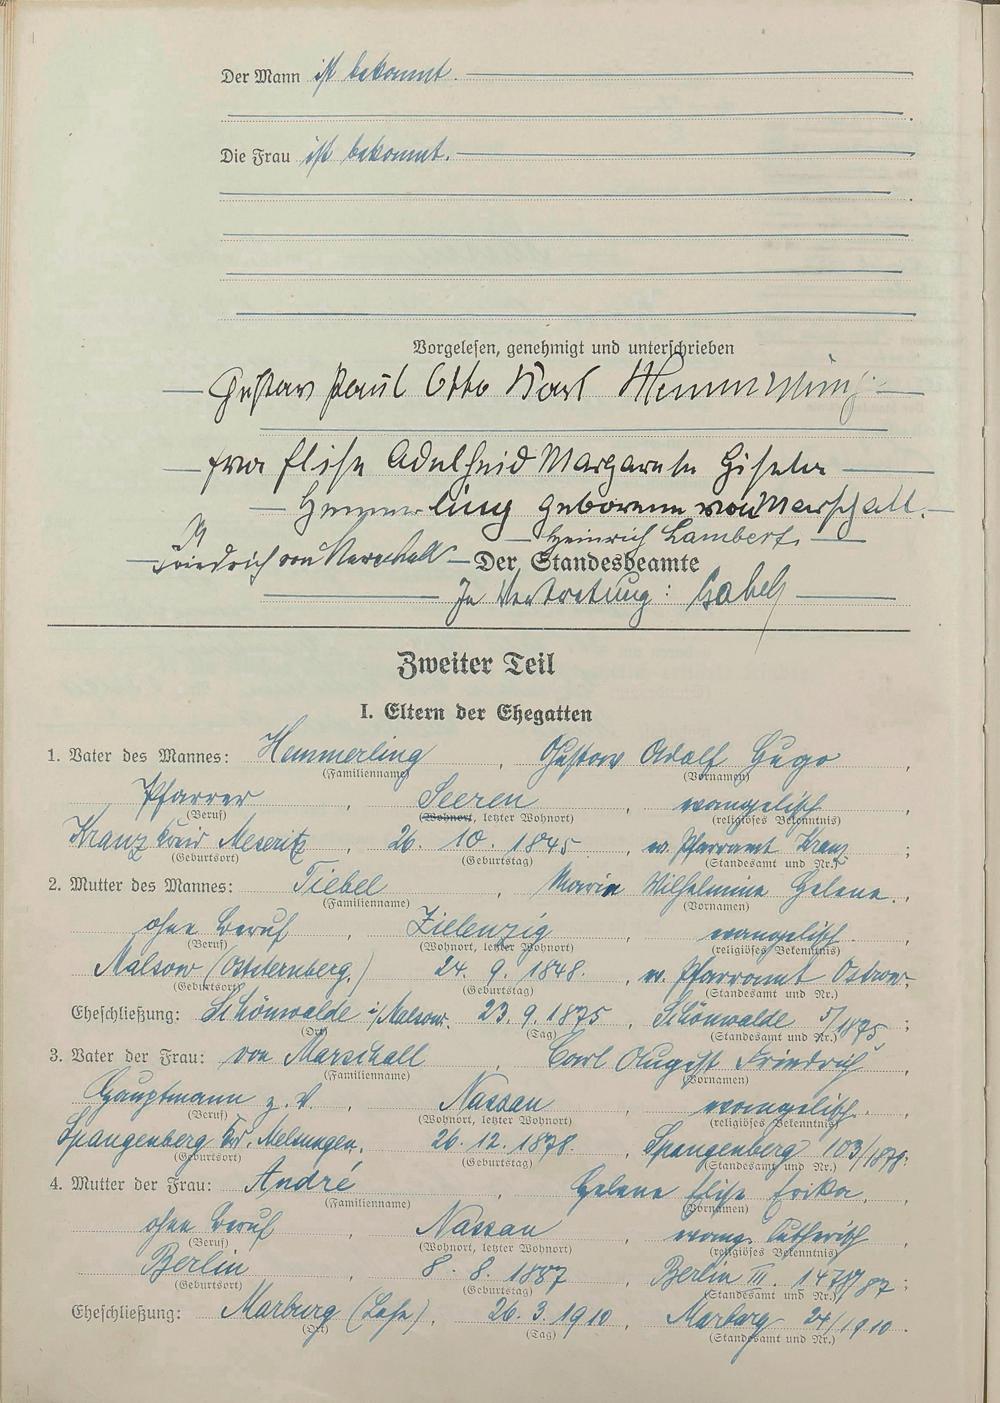 Der Mann ist bekannt.
Die Frau ist bekannt.
Vorgelesen, genehmigt und unterschrieben
Gustav Paul Otto Karl Hemmerling
Elise Adelheid Margarete Gisela
Hemmerling geborene von Marschall.
Heinrich Lambert.
Friedrich von Marschall Der Standesbeamte
In Vertretung: Gabel
Zweiter Teil
I. Eltern der Ehegatten
1. Vater des Mannes: Hemmerling, Gustav Adolf Hugo,
(Familienname) (Vornamen)
Pfarrer, Seeren, evangelisch,
(Beruf) (Wohnort, letzter Wohnort) (religiöses Bekenntnis)
Kranz Kreis Meseritz, 26. 10. 1845, ev. Pfarramt Kranz;
(Geburtsort) (Geburtstag) (Standesamt und Nr.)
2. Mutter des Mannes: Tiebel, Maria Wilhelmine Helene,
(Familienname) (Vornamen)
ohne Beruf, Zielenzig, evangelisch,
(Beruf) (Wohnort, letzter Wohnort) (religiöses Bekenntnis)
Malsow (Oststernberg.) 24. 9. 1848. ev. Pfarramt Ostrow.
(Geburtsort) (Geburtstag) (Standesamt und Nr.)
Eheschließung: Schönwalde i/Malsow. 23. 9. 1875, Schönwalde 5/1875;
(Ort) (Tag) (Standesamt und Nr.)
3. Vater der Frau: von Marschall, Carl August Friedrich,
(Familienname) (Vornamen)
Hauptmann z. V., Nassau, evangelisch,
(Beruf) (Wohnort, letzter Wohnort) (religiöses Bekenntnis)
Spangenberg Kr. Melsungen, 26. 12. 1878. Spangenberg 103/1878;
(Geburtsort) (Geburtstag) (Standesamt und Nr.)
4. Mutter der Frau: André, Helene Elise Erika,
(Familienname) (Vornamen)
ohne Beruf, Nassau, evang. lutherisch,
(Beruf) (Wohnort, letzter Wohnort) (religiöses Bekenntnis)
Berlin, 8. 8. 1887, Berlin III.
(Geburtsort) (Geburtstag) (Standesamt und Nr.)
Eheschließung: Marburg (Lahn), 26. 3. 1910, Marburg 24/1910.
(Ort) (Tag) (Standesamt und Nr.)